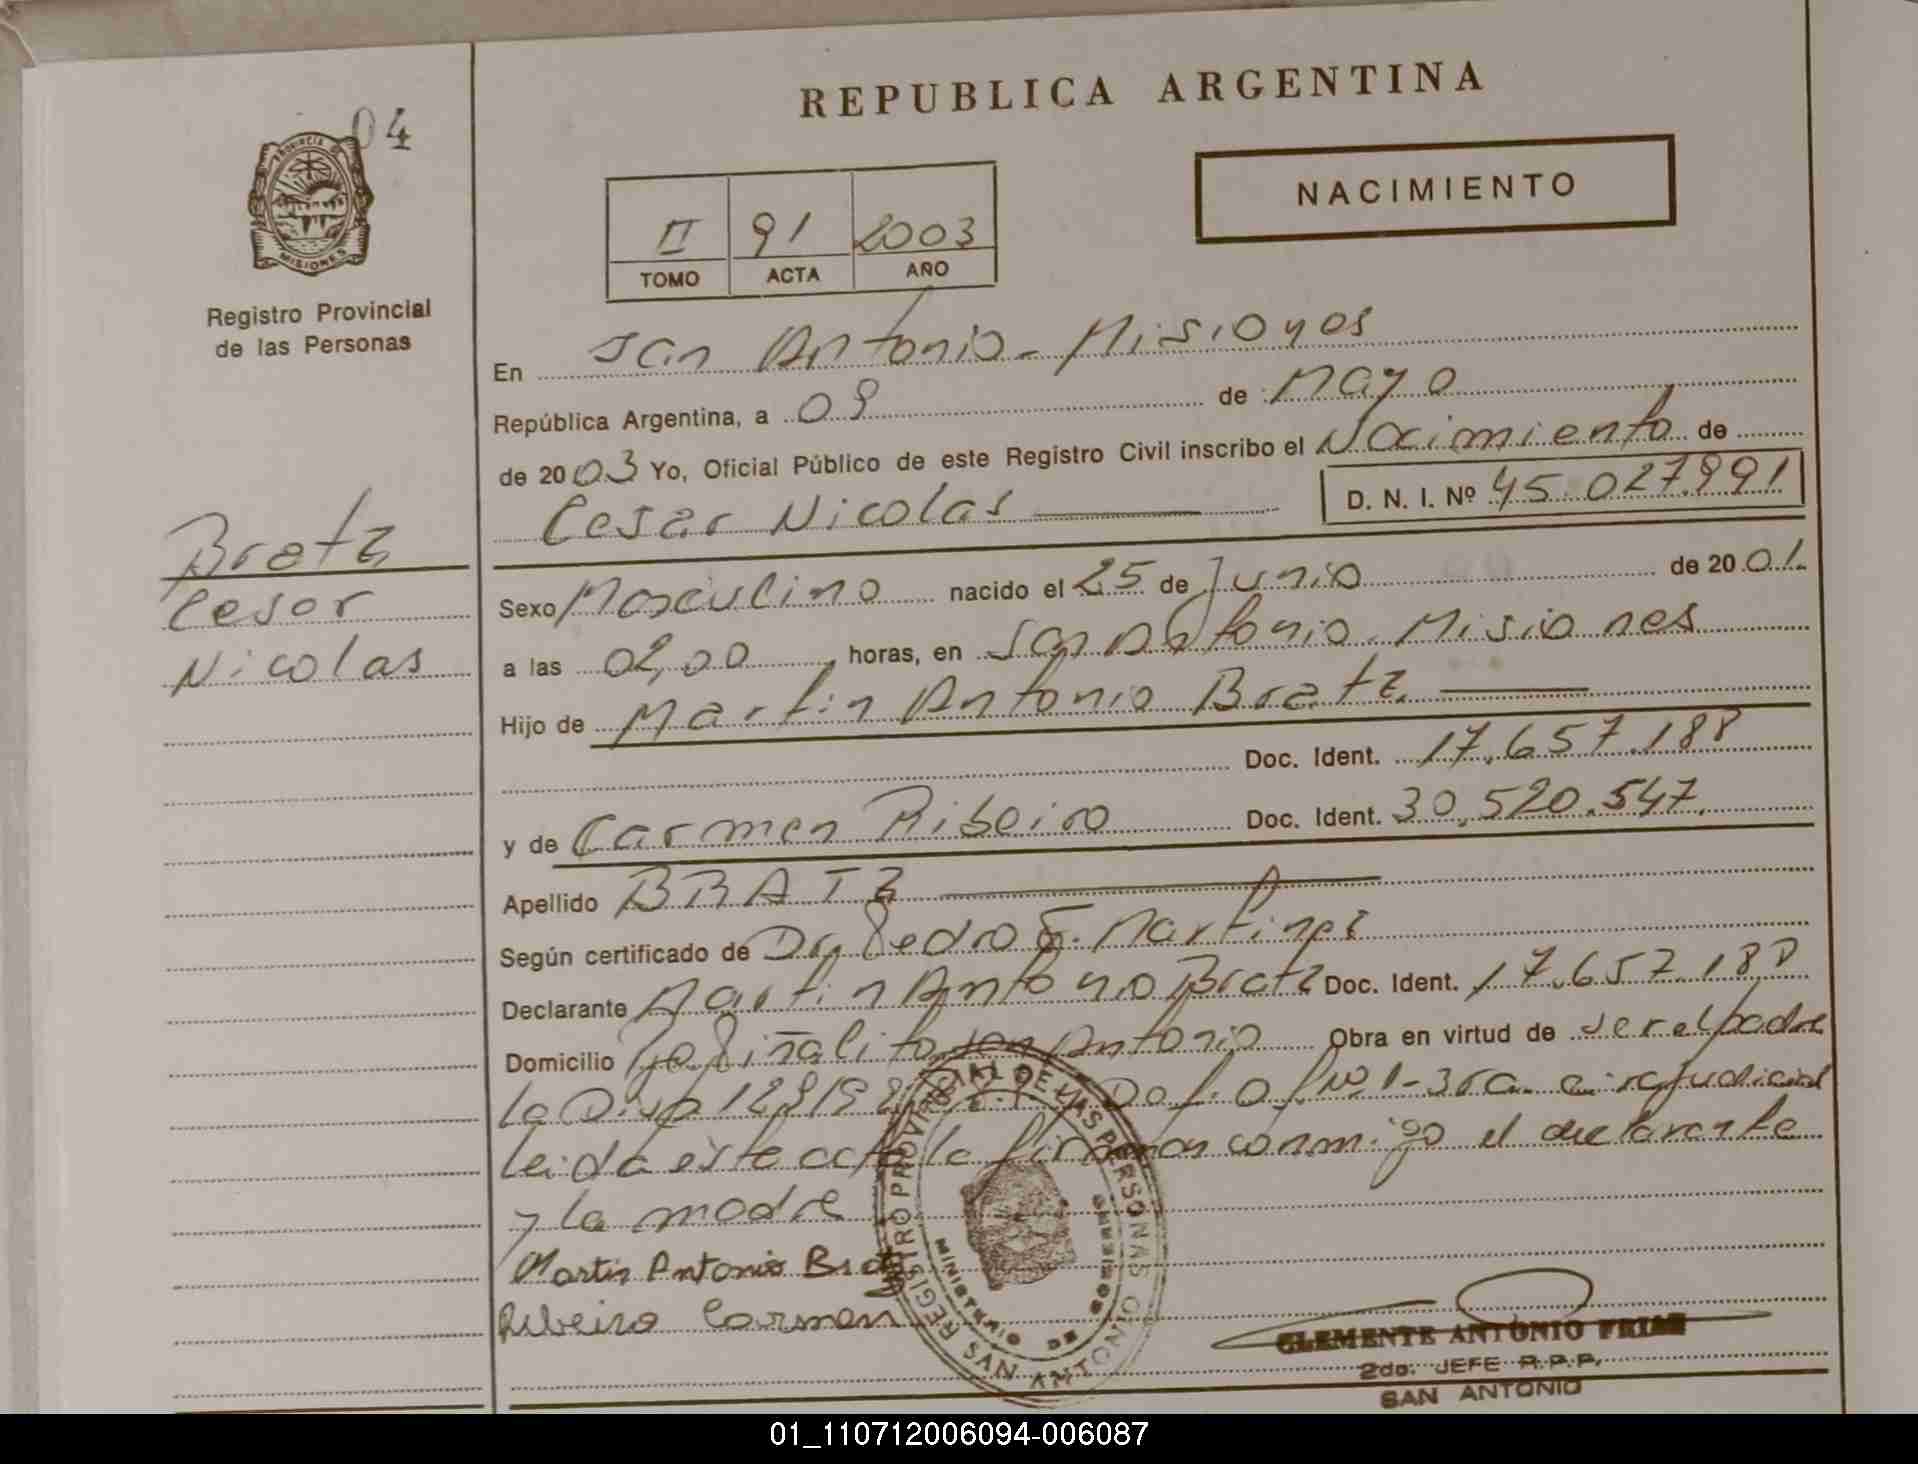 04
PROVINCIA DE
MISIONES
Registro Provincial
de las Personas
Bratz
Cesar
Nicolas
REPUBLICA ARGENTINA
NACIMIENTO
II 91 2003
TOMO ACTA AÑO
En San Antonio - Misiones
República Argentina, a 09 de Mayo
de 2003 Yo, Oficial Público de este Registro Civil inscribo el Nacimiento de
Cesar Nicolas D. N. I. Nº 45.027.991
Sexo Masculino nacido el 25 de Junio de 2001.
a las 02,00 horas, en San Antonio. Misiones
Hijo de Martin Antonio Bratz.
Doc. Ident. 17.657.188
y de Carmen Ribeiro Doc. Ident. 30.520.547.
Apellido BRATZ
Según certificado de Dr. Pedro E. Martinez
Declarante Martin Antonio Bratz Doc. Ident. 17.657.188
Domicilio Piñalito San Antonio Obra en virtud de ser el padre
La Disp Def. Of. Nº 1-3ra. circ judicial
Leida este acta la firman conmigo el declarante
y la madre
Martin Antonio Bratz
Ribeiro Carmen
REGISTRO PROVINCIAL DE LAS PERSONAS
MINISTERIO DE GOBIERNO
SAN ANTONIO
CLEMENTE ANTONIO FRIAS
2do. JEFE R.P.P.
SAN ANTONIO
01_110712006094-006087